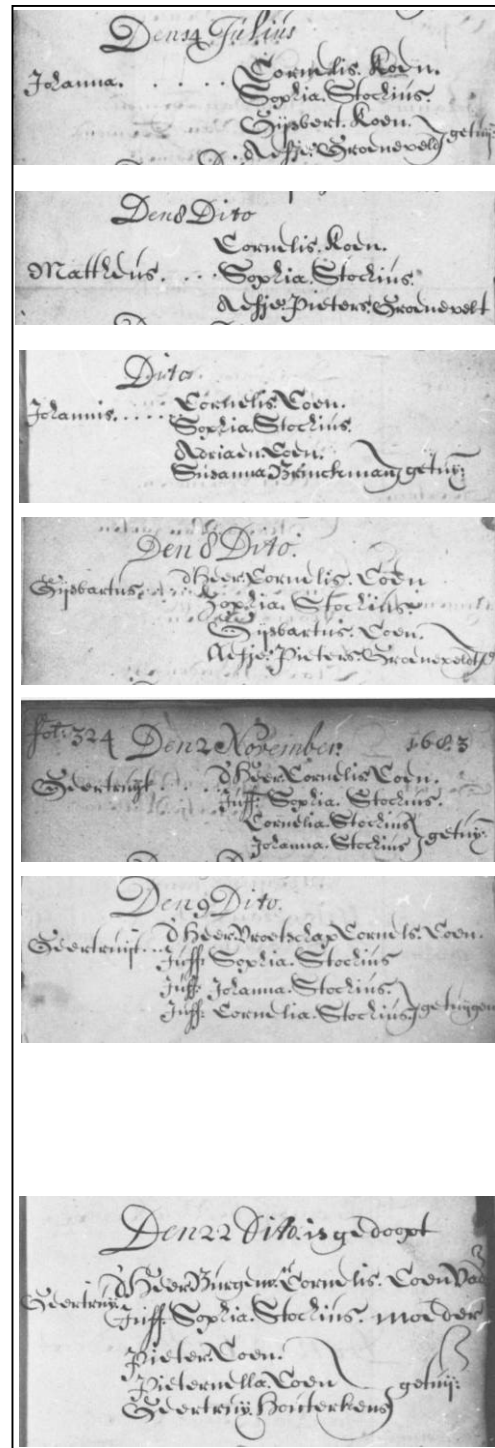 Den 14 Julius
Johanna. . . . . Cornelis. Koen.
Sophia. Stochius.
Gijsbert. Koen.
Aefje. Groeneveld getuij:
Den 8 Dito
Cornelis. Koen.
Mattheus. . . . Sophia. Stochius.
Aefje. Pieters. Groenevelt
Dito.
Johannis. . . . . Cornelis. Coen.
Sophia. Stochius.
Adriaen. Coen.
Susanna. Brinckman getuij:
Den 8 Dito.
Gijsbartus. . . . d'Heer. Cornelis. Coen
Sophia. Stochius.
Gijsbartus. Coen.
Aefje. Pieters. Groeneveldt
fot: 324 Den 2 November. 1683
Geertruijt. . . d'Heer. Cornelis Coen.
Juff: Sophia. Stochius.
Cornelia. Stochius
Johanna. Stochius getuij:
Den 9 Dito.
Geertruijt... d'Heer. Vroetschap Cornelis. Coen.
Juff: Sophia. Stochius
Juff: Johanna. Stochius.
Juff: Cornelia. Stochius. getuijgen
Den 22 Dito. is gedoopt
Geertruij: d'Heer Burgem: Cornelis. Coen Vad
Juff: Sophia. Stochius. moeder
Pieter. Coen.
Pieternella. Coen getuij:
Geertruij. Houterkens